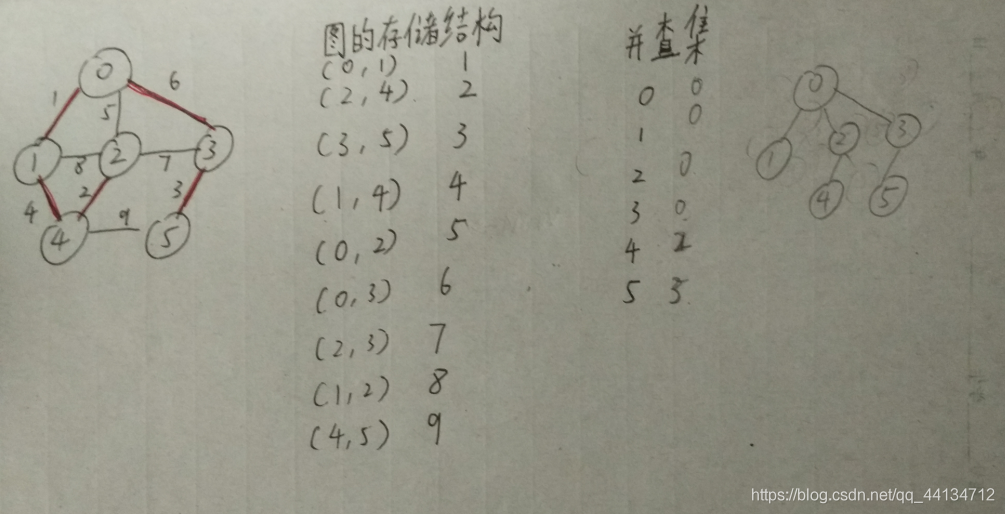 图的存储结构
(0,1) 1
(2,4) 2
(3,5) 3
(1,4) 4
(0,2) 5
(0,3) 6
(2,3) 7
(1,2) 8
(4,5) 9
并查集
0 0
1 0
2 0
3 0
4 2
5 3
0
1 6
5
1 2 3
8 7
4 2 3
9
4 5
0
1 2 3
4 5
https://blog.csdn.net/qq_44134712